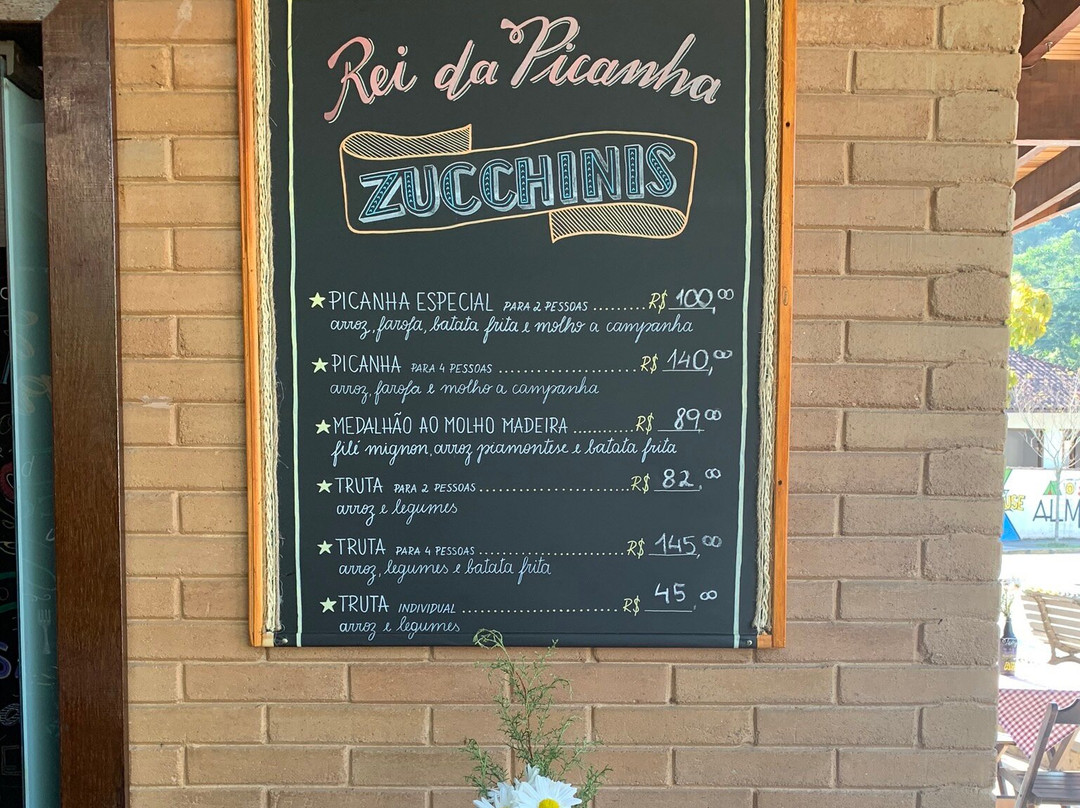 Rei da Picanha
ZUCCHINIS
★ PICANHA ESPECIAL PARA 2 PESSOAS ......... R$ 100,00
arroz, farofa, batata frita e molho a campanha
★ PICANHA PARA 4 PESSOAS ......... R$ 140,00
arroz, farofa e molho a campanha
★ MEDALHÃO AO MOLHO MADEIRA ......... R$ 89,00
filé mignon, arroz piamontese e batata frita
★ TRUTA PARA 2 PESSOAS ......... R$ 82,00
arroz e legumes
★ TRUTA PARA 4 PESSOAS ......... R$ 145,00
arroz, legumes e batata frita
★ TRUTA INDIVIDUAL ......... R$ 45,00
arroz e legumes